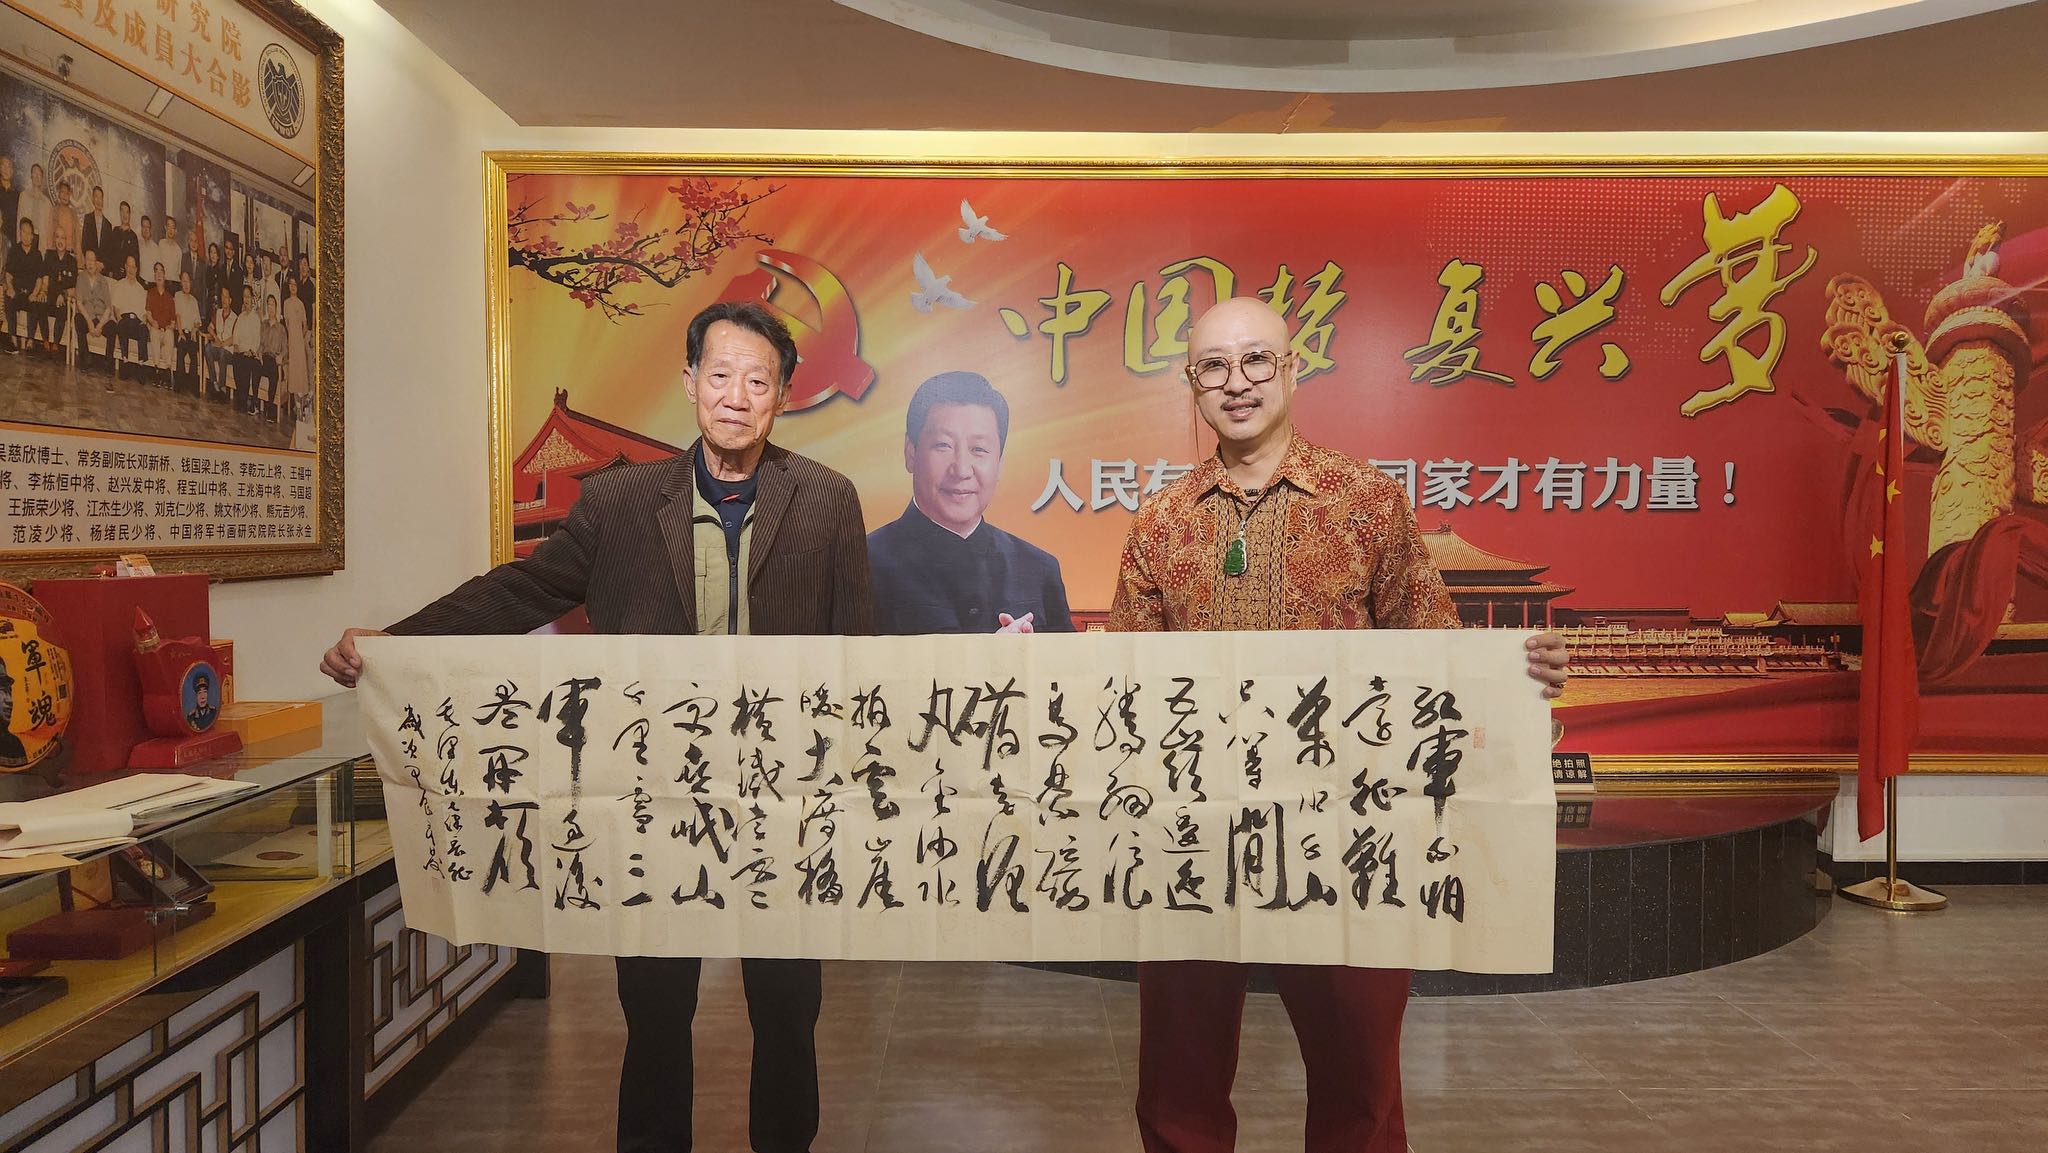 研究院
員及成員大合影
吴慈欣博士、常务副院长邓新桥、钱国梁上将、李乾元上将、王福中
将、李栋恒中将、赵兴发中将、程宝山中将、王兆海中将、马国超
王振荣少将、江杰生少将、刘克仁少将、姚文怀少将、熊元吉少将、
范凌少将、杨绪民少将、中国将军书画研究院院长张永金
軍魂
中国梦 复兴梦
人民有 国家才有力量！
红軍不怕
遠征難
萬水千山
只等閒
五嶺逶迤
腾細浪
乌蒙磅
礴走泥
丸金沙水
拍雲崖
暖大渡橋
横鐵索寒
更喜岷山
千里雪三
軍過後
盡開顏
毛泽东七律長征
歲次甲辰
绝拍照
请谅解